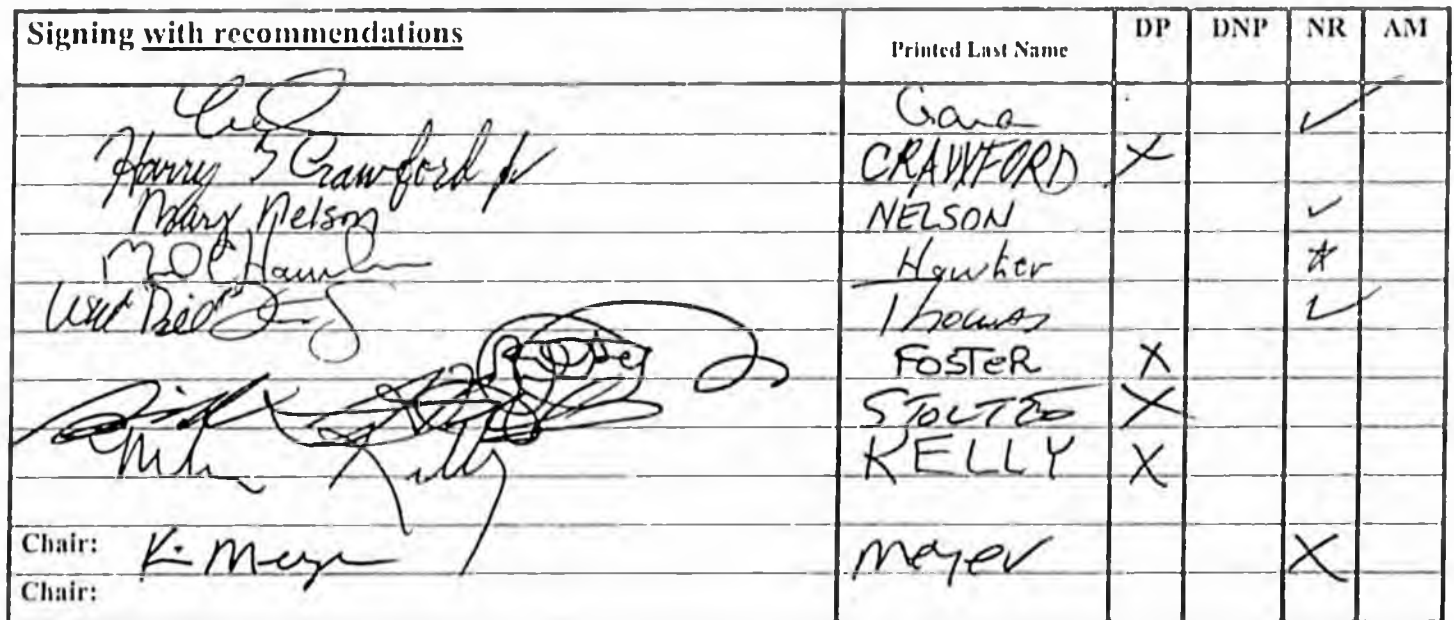 Signing with recommendations Printed Last Name DP DNP NR AM
Gara ✓
Harry S Crawford Jr CRAWFORD X
Mary Nelson NELSON ✓
Hawker *
Thomas ✓
FOSTER X
STOLTZE X
Mike Kelly KELLY X
Chair: K. Meyer Meyer X
Chair: